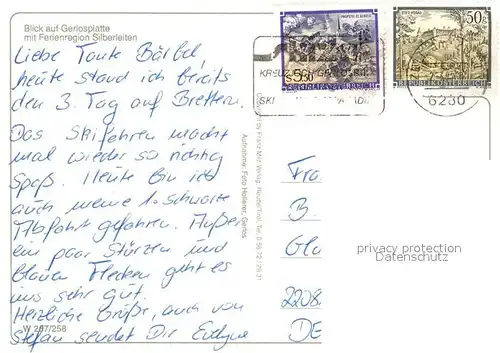 Blick auf Gerlosplatte
mit Ferienregion Silberleiten
Liebe Tante Bärbel,
heute stand ich bereits
den 3. Tag auf Brettern.
Das Skifahren macht
mal wieder so richtig
Spaß. Heute bin ich
auch meine 1. schwarze
Abfahrt gefahren. Außer
ein paar Stürzen und
blauen Flecken geht es
uns sehr gut.
Herzliche Grüße, auch von
Stefan sendet Dir Evelyne
W 257/258
Copyright by Franz Milz Verlag, Reutte/Tirol, Tel. 0 56 72
Aufnahme: Foto Hollerer, Gerlos
5
50
REPUBLIK ÖSTERREICH
SKI
6280
Fra
B
Glo
2208
DE
privacy protection
Datenschutz